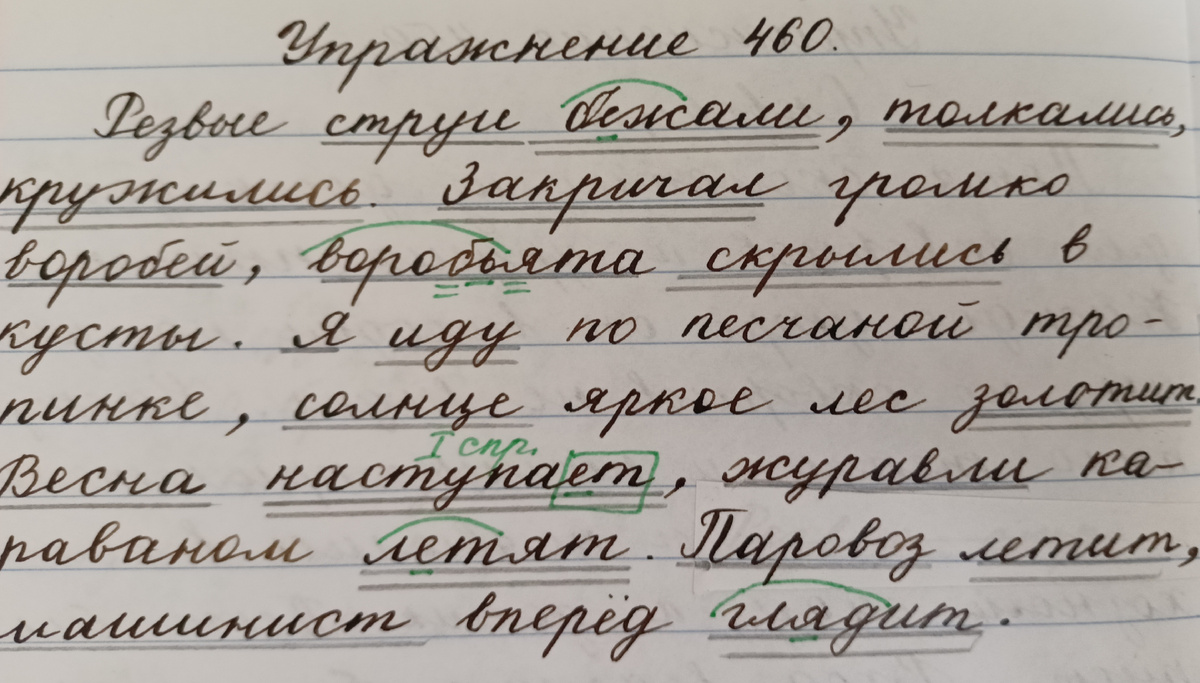 Упражнение 460.
Резвые струи бежали, толкались,
кружились. Закричал громко
воробей, воробьята скрылись в
кусты. Я иду по песчаной тро-
пинке, солнце яркое лес золотит.
I спр.
Весна наступает, журавли ка-
раваном летят. Паровоз летит,
машинист вперёд глядит.